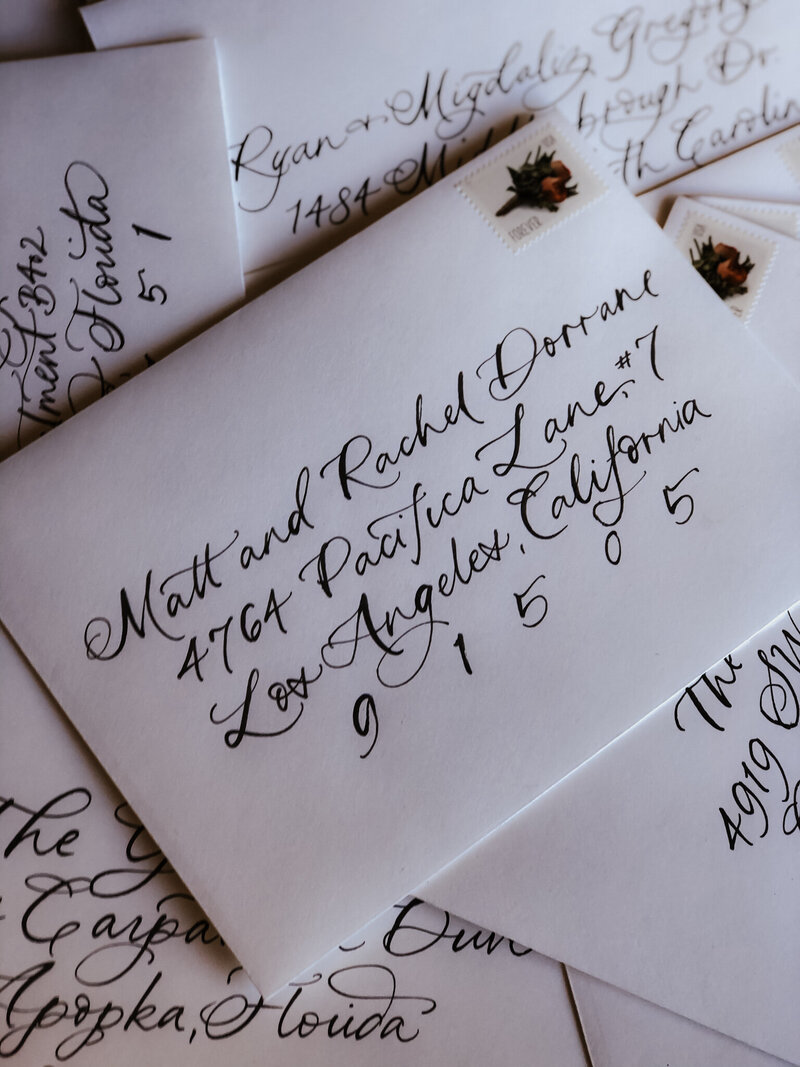 Ryan + Migdaliz Gregory
1484 Mid brough Dr.
th Carolin
FOREVER
USA
tment B402
Florida
5 1
Matt and Rachel Dorrane
4764 Pacifica Lane, #7
Los Angeles, California
9 1 5 0 5
The
4919 SW
The
Carpa Dun
Apopka, Florida